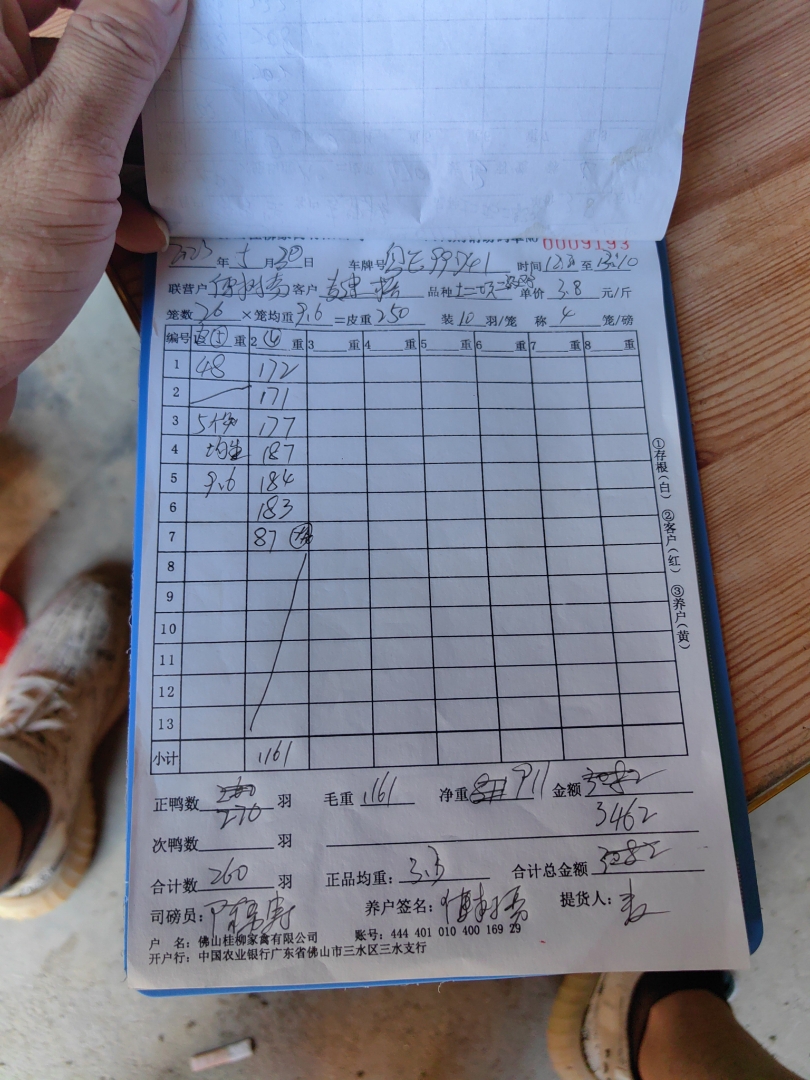 0009193
2023年5月30日 车牌号 99741 时间 至 13:10
联营户 客户 品种 单价 3.8 元/斤
笼数 26 ×笼均重 9.6 =皮重 250 装 10 羽/笼 称 4 笼/磅
编号 重 2 ④ 重 3 重 4 重 5 重 6 重 7 重 8 重
1 48 172
2 171
3 5 177
4 均重 187
5 9.6 184
6 183
7 87
8
9
10
11
12
13
小计 1161
①存根(白) ②客户(红) ③养户(黄)
正鸭数 260 270 羽 毛重 1161 净重 911 金额 3082
3462
次鸭数 羽
合计数 260 羽 正品均重: 3.3 合计总金额 3082
司磅员: 养户签名: 提货人:
户 名: 佛山桂柳家禽有限公司 账号: 444 401 010 400 169 29
开户行: 中国农业银行广东省佛山市三水区三水支行